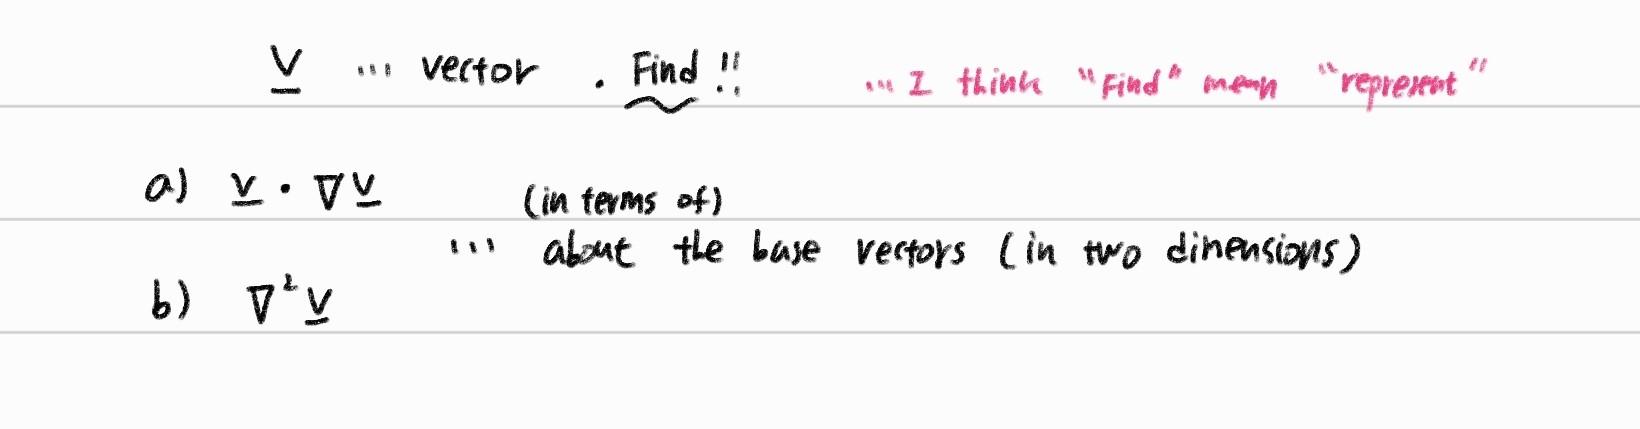 v ... vector . Find !! ... I think "Find" mean "represent"
a) v · ∇v (in terms of)
... about the base vectors (in two dimensions)
b) ∇² v